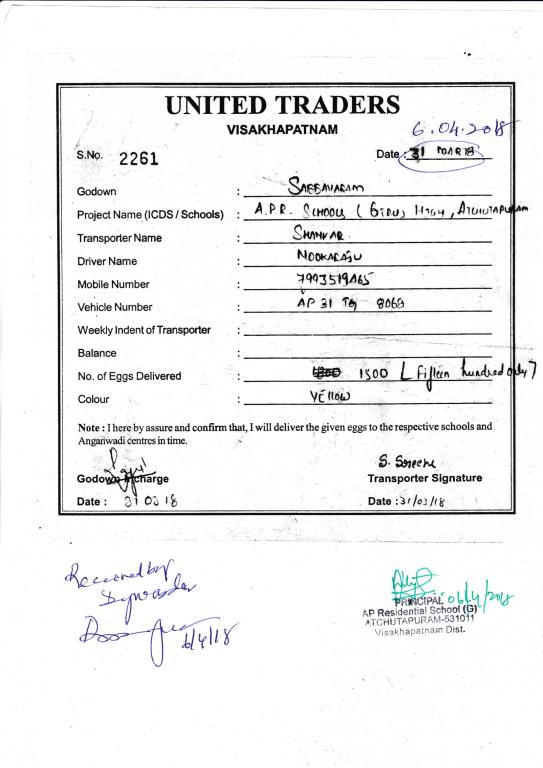 UNITED TRADERS
VISAKHAPATNAM
6.04.2018
S.No. 2261
Date : 31 MAR 18
Godown : SABBAVARAM
Project Name (ICDS / Schools) : A.P.R. SCHOOL (GIRLS) HIGH, ATCHUTAPURAM
Transporter Name : SHANKAR
Driver Name : NOOKARAJU
Mobile Number : 7993519465
Vehicle Number : AP 31 TG 8068
Weekly Indent of Transporter :
Balance :
No. of Eggs Delivered : 1500 [ Fifteen hundred only ]
Colour : YELLOW
Note : I here by assure and confirm that, I will deliver the given eggs to the respective schools and
Anganwadi centres in time.
Godown Incharge
S. Sreenu
Transporter Signature
Date : 31 03 18
Date : 31/03/18
Received by
6/4/18
06/4/2018
PRINCIPAL
AP Residential School (G)
ATCHUTAPURAM-531011
Visakhapatnam Dist.